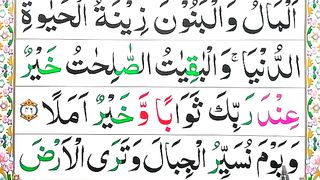 اَلْمَالُ وَالْبَنُوْنَ زِيْنَةُ الْحَيٰوةِ
الدُّنْيَا ۚ وَالْبٰقِيٰتُ الصّٰلِحٰتُ خَيْرٌ
عِنْدَ رَبِّكَ ثَوَابًا وَّخَيْرٌ اَمَلًا ﴿٤٦﴾
وَيَوْمَ نُسَيِّرُ الْجِبَالَ وَتَرَى الْاَرْضَ